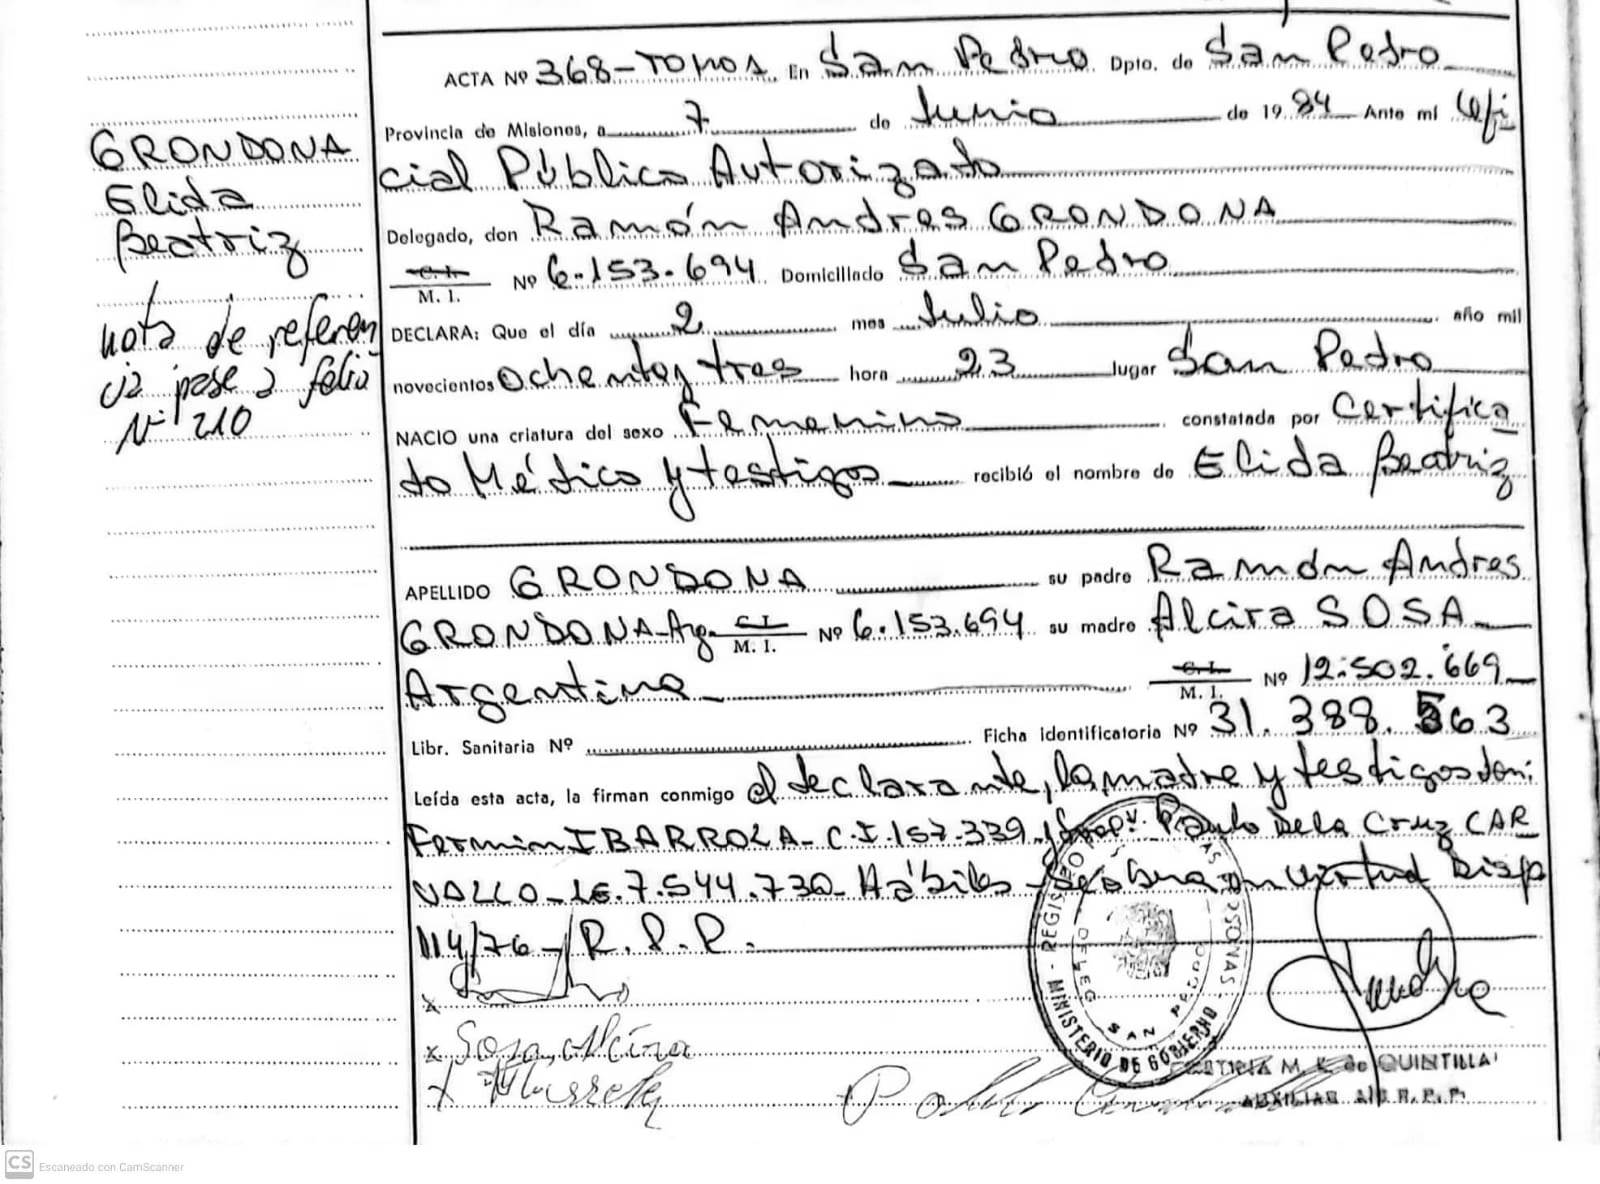 GRONDONA
Elida
Beatriz
nota de referen
cia pase a folio
Nº 210
ACTA Nº 368-TOMO1 En San Pedro Dpto. de San Pedro
Provincia de Misiones, a 7 de Junio de 1984 Ante mí Ofi
cial Público Autorizado
Delegado, don Ramón Andres GRONDONA
C. I.
M. I. Nº 6.153.694 Domiciliado San Pedro
DECLARA: Que el día 2 mes Julio año mil
novecientos Ochenta y tres hora 23 lugar San Pedro
NACIO una criatura del sexo Femenino constatada por Certifica
do Médico y testigos recibió el nombre de Elida Beatriz
APELLIDO GRONDONA su padre Ramón Andres
GRONDONA-Arg. C. I.
M. I. Nº 6.153.694 su madre Alcira SOSA
Argentina C. I.
M. I. Nº 12.502.669
Libr. Sanitaria Nº Ficha Identificatoria Nº 31.388.563
Leída esta acta, la firman conmigo el declarante, la madre y testigos don:
Fermin IBARROLA- C.I.157.339 Paulo De la Cruz CAR
VALLO-LE.7.544.730-Hábiles- Se labra en virtud Disp
114/76-R.P.P.
x
x Sosa, Alcira
x
MINISTERIO DE GOBIERNO - REGISTRO DE LAS PERSONAS -
DELEG. SAN PEDRO
M. K. de QUINTILLA
AUXILIAR A/C R. P. P.
CS Escaneado con CamScanner